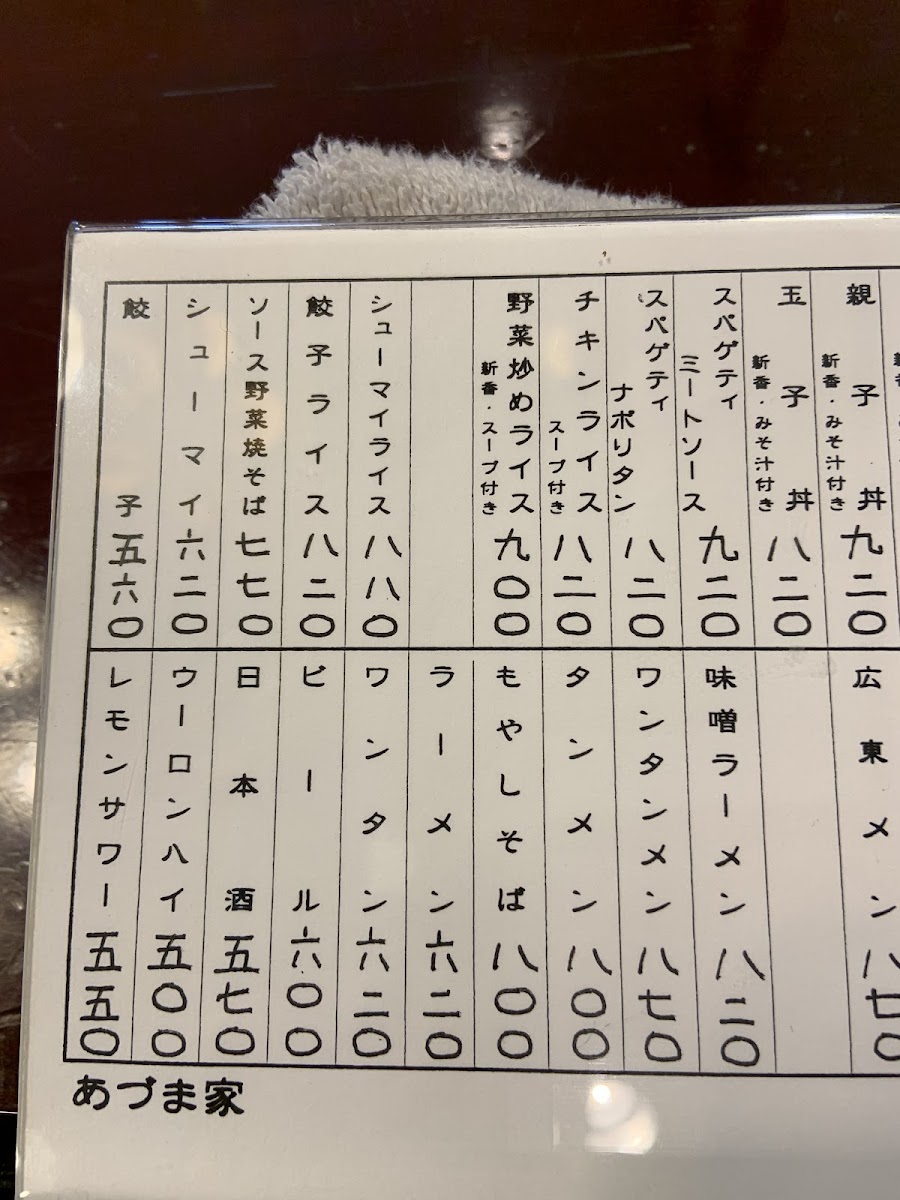 新香
親子丼 九二〇
新香・みそ汁付き
玉子丼 八二〇
新香・みそ汁付き
スパゲティ
ミートソース 九二〇
スパゲティ
ナポリタン 八二〇
チキンライス 八二〇
スープ付き
野菜炒めライス 九〇〇
新香・スープ付き
シューマイライス 八八〇
餃子ライス 八二〇
ソース野菜焼そば 七七〇
シューマイ 六二〇
餃子 五六〇
広東メン 八七〇
味噌ラーメン 八二〇
ワンタンメン 八七〇
タンメン 八〇〇
もやしそば 八〇〇
ラーメン 六二〇
ワンタン 六二〇
ビール 六〇〇
日本酒 五七〇
ウーロンハイ 五〇〇
レモンサワー 五五〇
あづま家